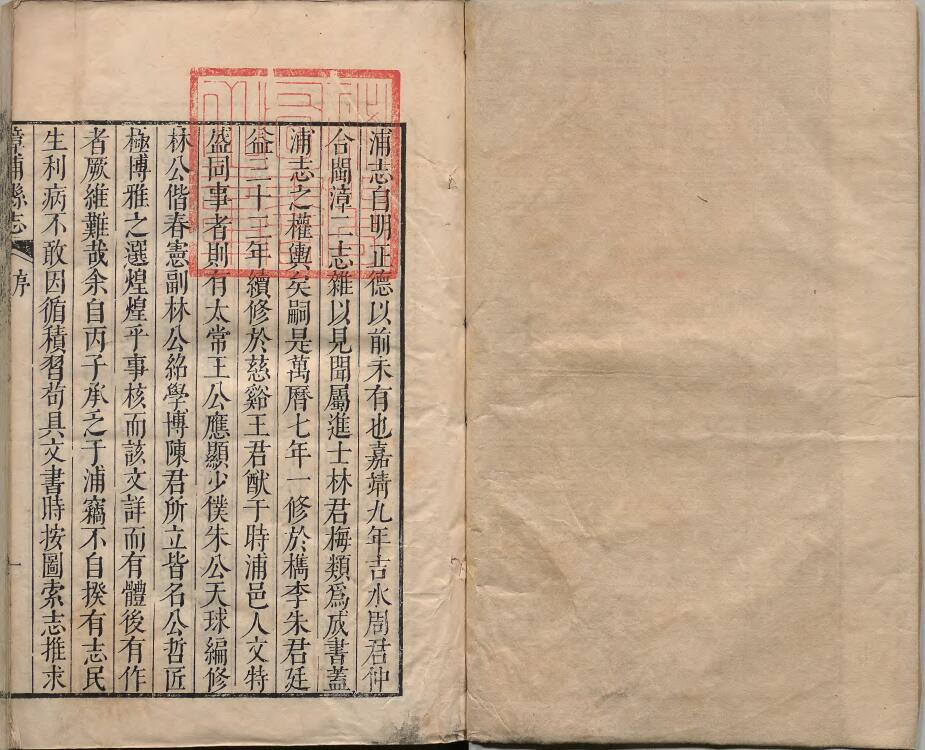 浦志自明正德以前未有也嘉靖九年吉水周君仲
合閩漳二志雜以見聞屬進士林君梅類爲成書蓋
浦志之權輿矣嗣是萬曆七年一修於檇李朱君廷
益三十二年續修於慈谿王君猷于時浦邑人文特
盛同事者則有太常王公應顯少僕朱公天球編修
林公偕春憲副林公紹學博陳君所立皆名公哲匠
極博雅之選煌煌乎事核而該文詳而有體後有作
者厥維難哉余自丙子承乏于浦竊不自揆有志民
生利病不敢因循積習苟具文書時按圖索志推求
漳浦縣志
序
一